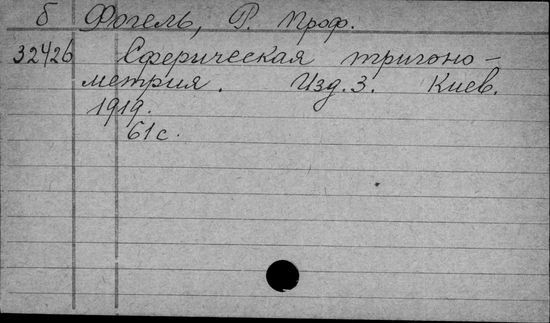 б Фогель, Р. Проф.
32426 Сферическая тригоно-
метрия. Изд. 3. Киев.
1919.
61 с.